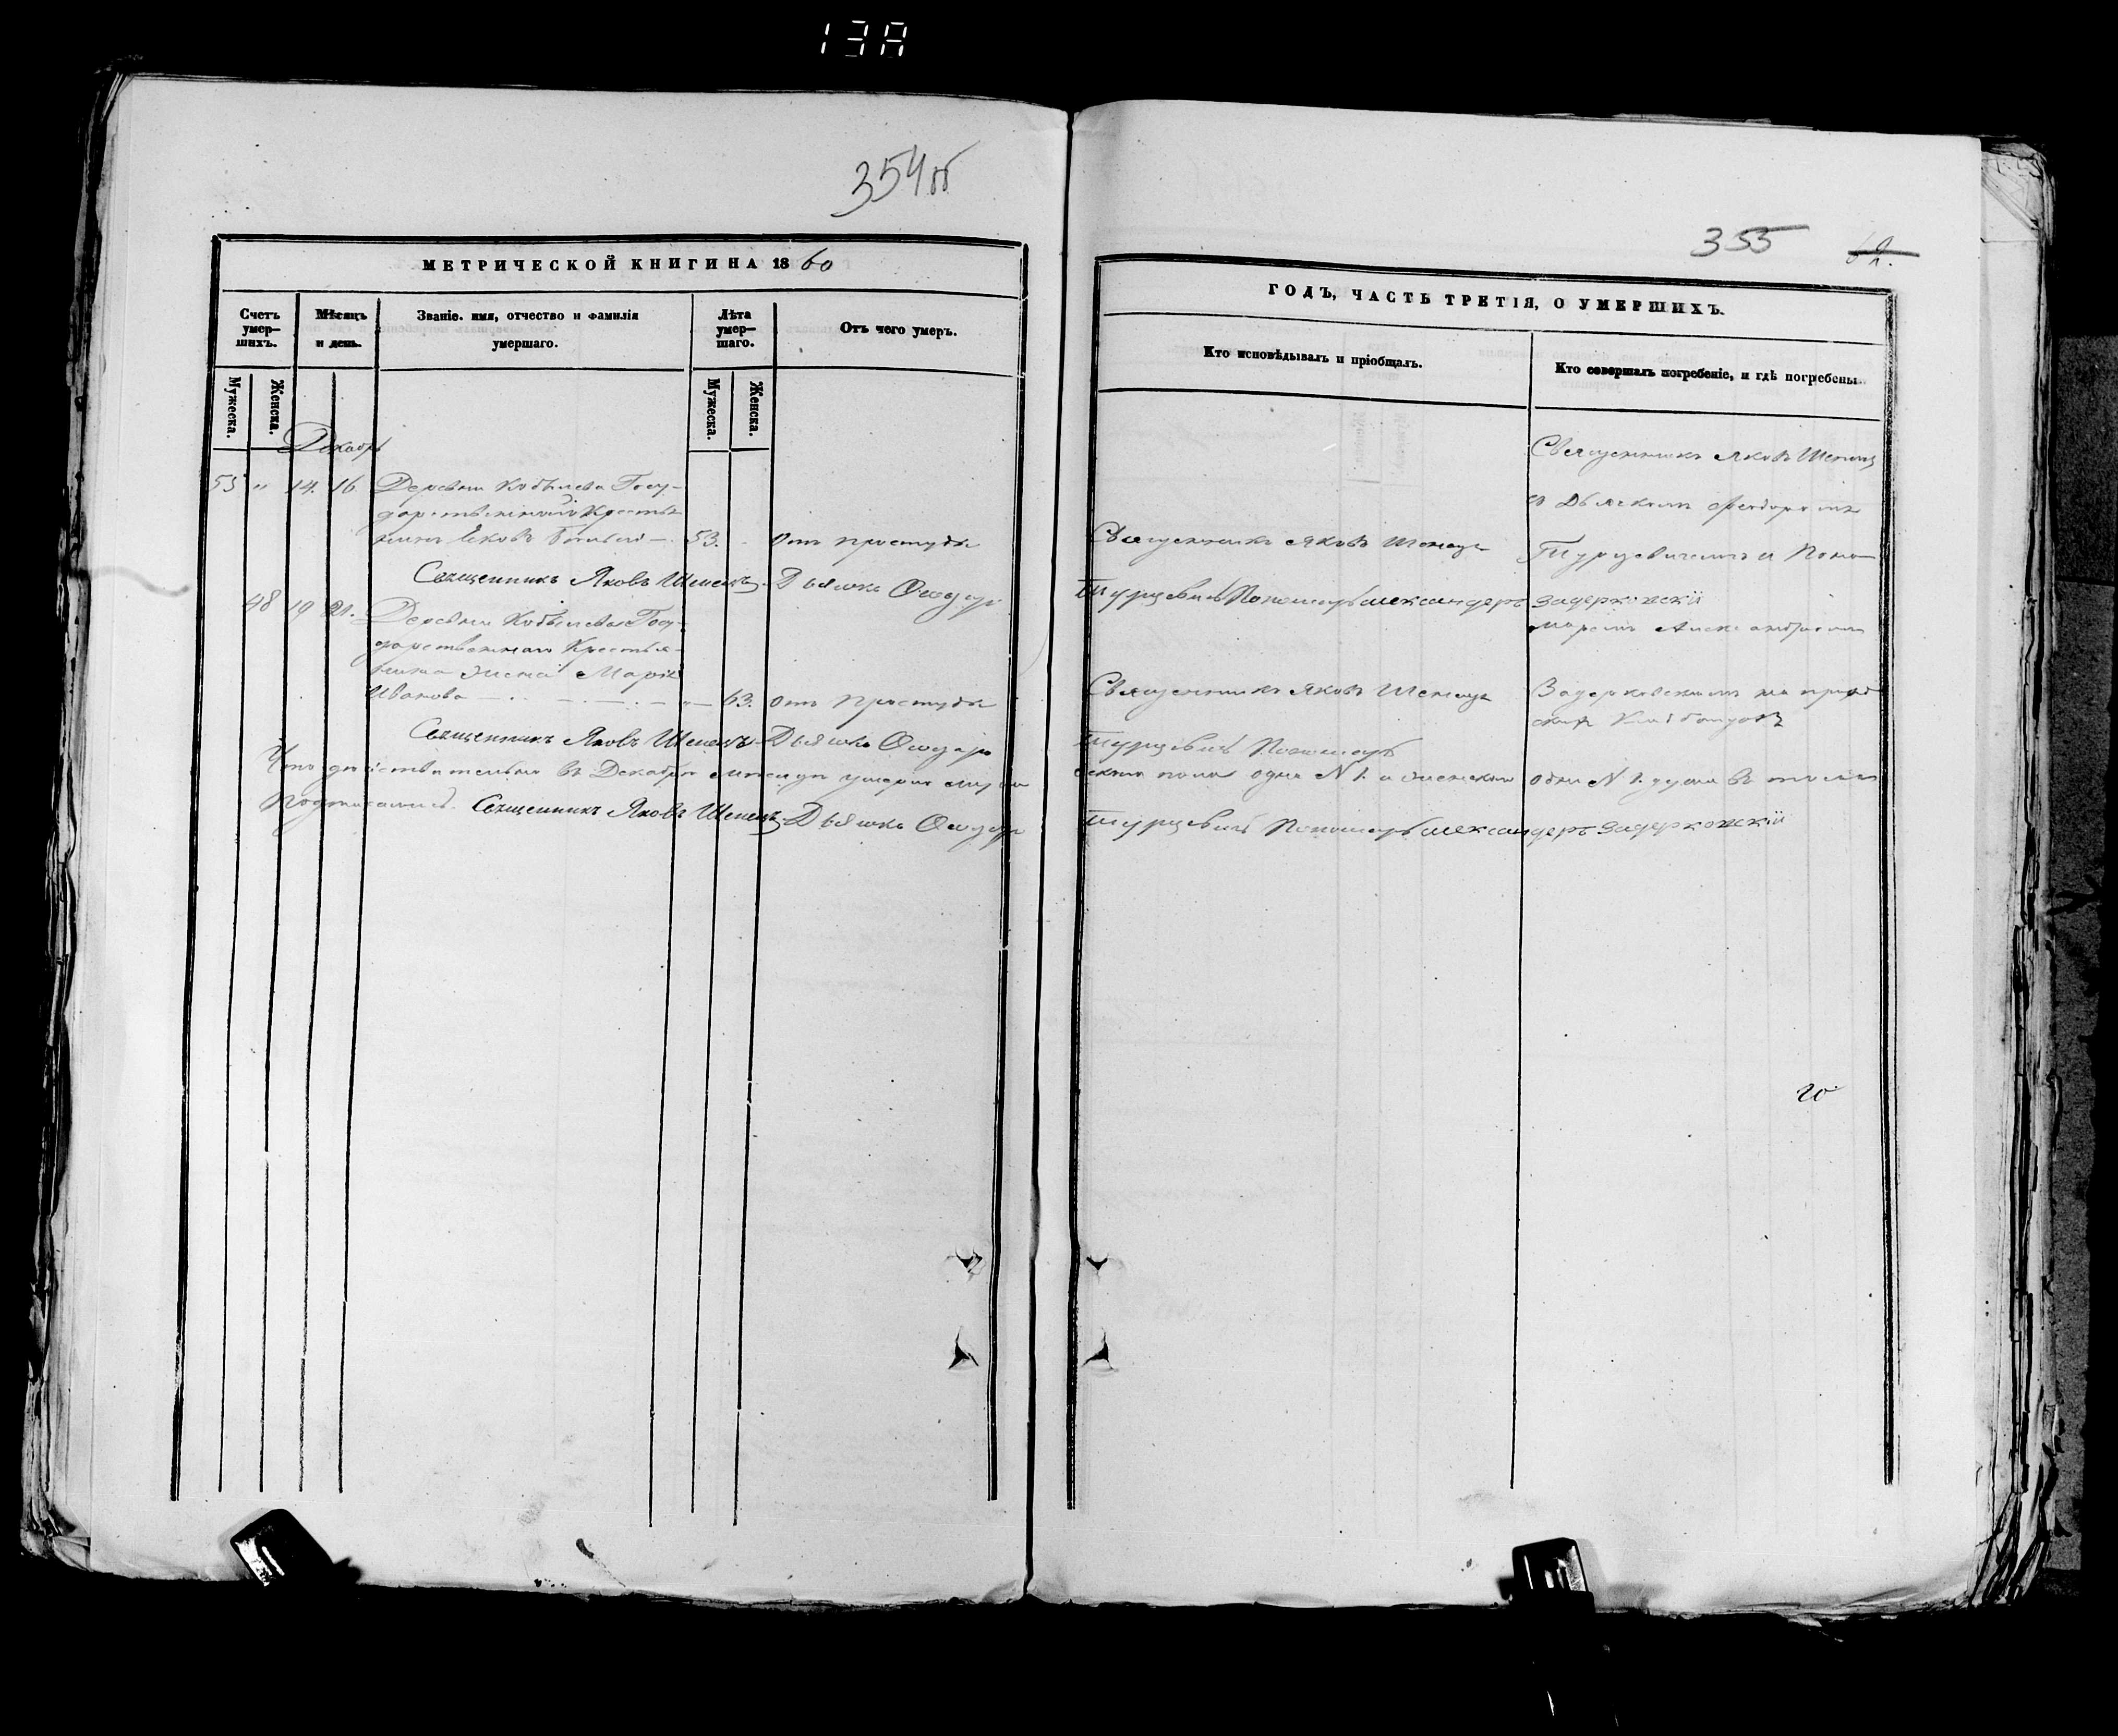 138
354 об
МЕТРИЧЕСКОЙ КНИГИ НА 18 60
Счетъ умер—шихъ.
Мѣсяцъ и день.
Званіе. имя, отчество и фамилія умершаго.
Лѣта умер—шаго.
Отъ чего умеръ.
Мужеска.
Женска.
Мужеска.
Женска.
Декабрь
53 " 14. 16 Деревни Кобылева Госу-
дарственный Крестья-
нинъ Яковъ 53. Отъ простуды
Священникъ Яковъ Шенецъ Дьячокъ Ѳеодоръ
48 19 21. Деревни Кобылева Госу-
дарственнаго Крестья-
нина жена Марія
Иванова 63. Отъ простуды
Священникъ Яковъ Шенецъ Дьячокъ Ѳеодоръ
Что действительно въ Декабрѣ месяцѣ умерло муж
Подписались. Священникъ Яковъ Шенецъ Дьячокъ Ѳеодоръ
355 62.
ГОДЪ, ЧАСТЬ ТРЕТІЯ, О УМЕРШИХЪ.
Кто исповѣдывалъ и пріобщалъ.
Кто совершалъ погребеніе, и гдѣ погребены.
Священникъ Яковъ Шенецъ
съ Дьячкомъ Феодоромъ
Священникъ Яковъ Шенецъ
Турцевичемъ и Поно-
Турцевичъ Пономарь Александеръ Задерковскій
маремъ Александромъ
Священникъ Яковъ Шенецъ
Задерковскимъ на приход
скомъ Кладбищѣ
Турцевичъ Пономарь
ескаго пола одна N 1. и женскаго одна N 1. душа въ томъ
Турцевичъ Пономарь Александеръ Задерковскій